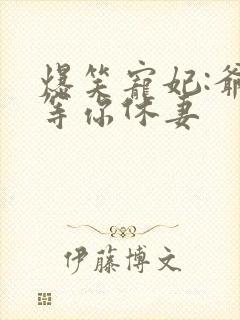 爆笑寵妃:爺
等你休妻
伊藤博文